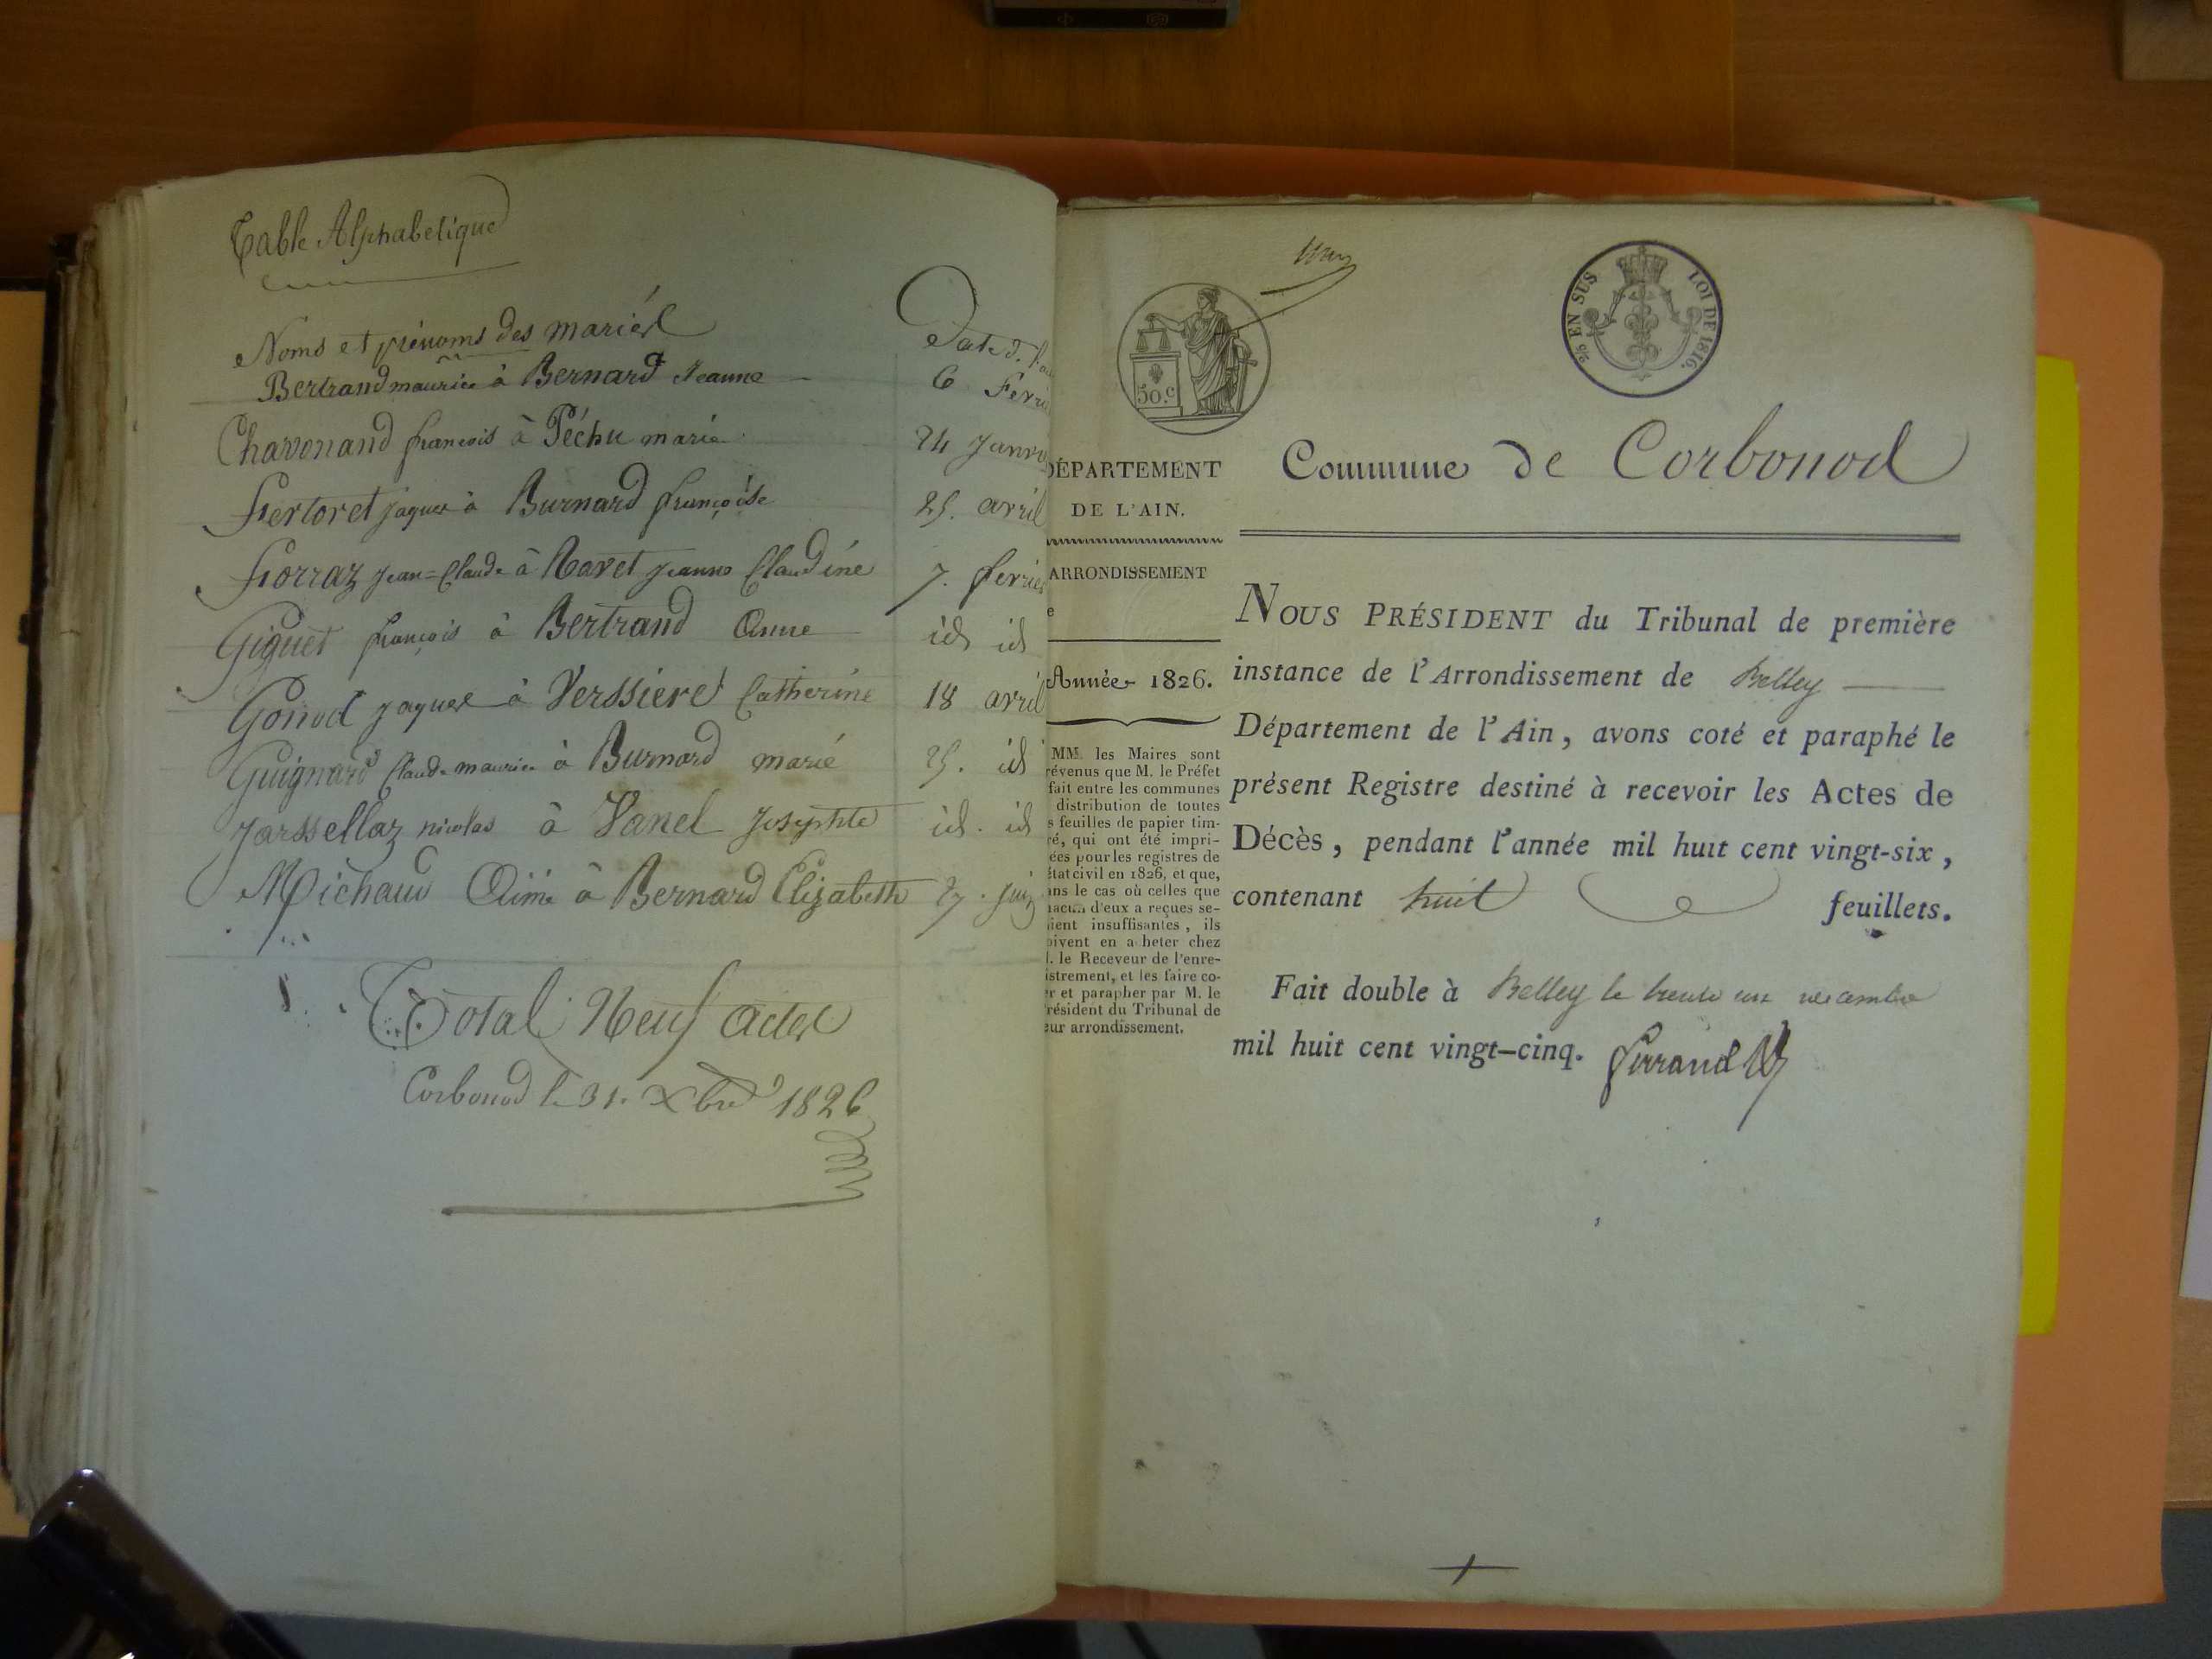 Table Alphabetique
Noms et prénoms des mariés
Date d. l'a
Bertrand maurice à Bernard Jeanne 6 Fevri
Chavonand françois à Péchu marie 24 Janvi
Fertoret jaques à Burnard françoise 25. avril
Forraz Jean=Claude à Ravet jeanne Claudine 7. fevrier
Giguet françois à Bertrand Anne id id
Gonod jaques à Verssieret Catherine 18 avril
Guignard Claude maurice à Burnard marie 25. id
Jarssellaz nicolas à Vanel Josephte id. id
Michaud Aimé à Bernard Elizabeth 27. juin
Total Neuf actes
Corbonod le 31. Xbre 1826
26 EN SUS LOI DE 1816.
50.c
DÉPARTEMENT
DE L'AIN.
ARRONDISSEMENT
e
Année 1826.
MM. les Maires sont
révenus que M. le Préfet
fait entre les communes
distribution de toutes
s feuilles de papier tim-
ré, qui ont été impri-
ées pour les registres de
état civil en 1826, et que,
ans le cas où celles que
hacun d'eux a reçues se-
aient insuffisantes, ils
oivent en acheter chez
l. le Receveur de l'enre-
istrement, et les faire co-
er et parapher par M. le
résident du Tribunal de
eur arrondissement.
Commune de Corbonod
NOUS PRÉSIDENT du Tribunal de première
instance de l'Arrondissement de Belley
Département de l'Ain, avons coté et paraphé le
présent Registre destiné à recevoir les Actes de
Décès, pendant l'année mil huit cent vingt-six,
contenant huit feuillets.
Fait double à Belley le trente un décembre
mil huit cent vingt-cinq. Ferrand